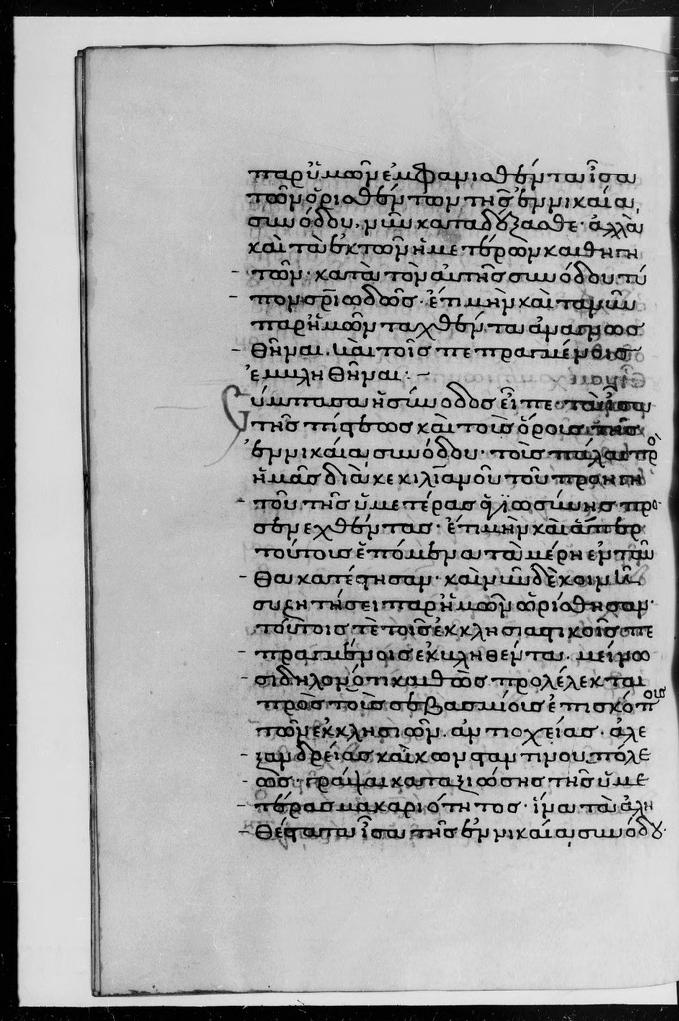 παρ' ὑμῶν ἐμφανισθέντα ἴσα
τῶν ὁρισθέντων τῆς ἐν νικαίᾳ
συνόδου. νῦν καταδέξασθε· ἀλλὰ
καὶ τὰ ἐκ τῶν ἡμετέρων καθηγη
τῶν· κατὰ τὸν αὐτῆς συνόδου τύ
πον ὁρισθῶς· ἔτι μὴν καὶ τὰ νῦν
παρ' ἡμῶν ταχθέντα ἀναγνωσ
θῆναι. καὶ τοῖς πεπραγμένοις
ἐμμληθῆναι:-
Σύμπασα ἡ σύνοδος εἶπε· τὰ ἴσα
τῆς πίστεως καὶ τοὺς ὅρους τῆς
ἐν νικαίᾳ συνόδου· τοῖς πάλαι πρὸ
ἡμᾶς διὰ κεκιλιανοῦ τοῦ προηγη
τοῦ τῆς ὑμετέρας ἁγιωσύνης προ
σενεχθέντας· ἔτι μὴν καὶ ἅπερ
τούτοις ἑπόμενα τὰ μέρη ἐνταῦ
θα κατέστησαν· καὶ νῦν δὲ κοινῇ
συζητήσει παρ' ἡμῶν ὡρίσθησαν·
τούτοις τὲ τοῖς ἐκκλησιαστικοῖς πε
πραγμένοις ἐκμληθέντα. μείνω
σι δηλονότι καθὼς προλέλεκται
πρὸς τοῖς σεβασμίοις ἐπισκόποις
τῶν ἐκκλησιῶν. ἀντιοχείας· ἀλε
ξανδρείας καὶ κωνσταντίνου πόλε
ως· γράψαι καταξιώσῃς τῆς ὑμε
τέρας μακαριότητος· ἵνα τὰ ἀλη
θέστατα ἴσα τῆς ἐν νικαίᾳ συνόδου·